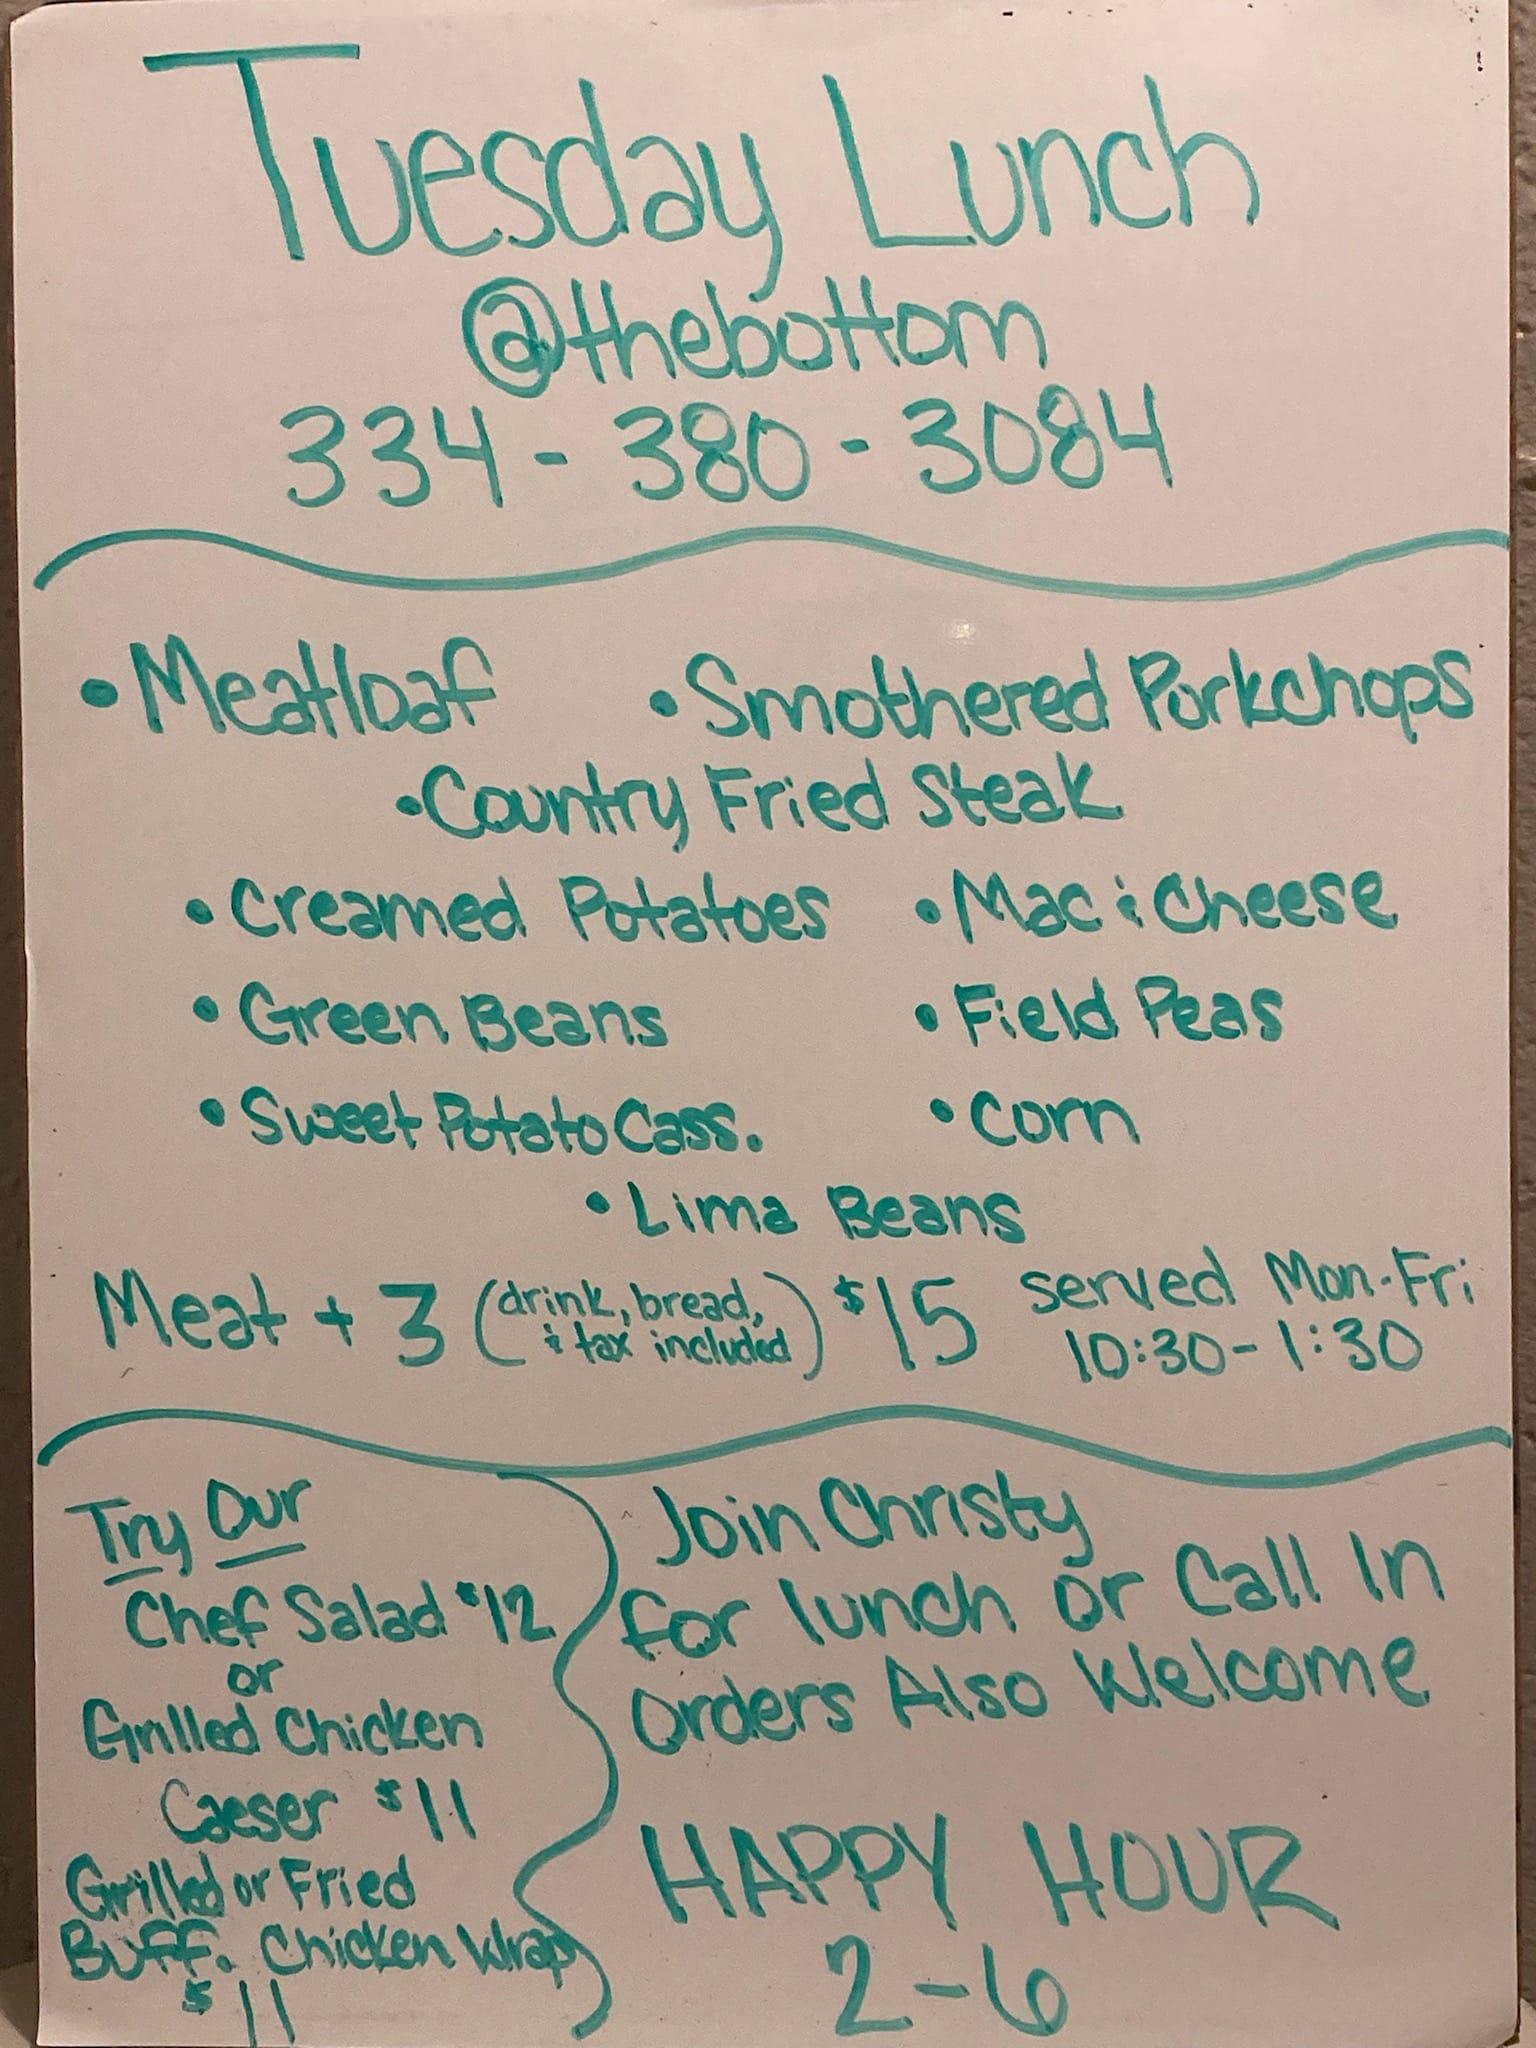 Tuesday Lunch
@thebottom
334-380-3084
• Meatloaf • Smothered Porkchops
• Country Fried Steak
• Creamed Potatoes • Mac & Cheese
• Green Beans • Field Peas
• Sweet Potato Cass. • Corn
• Lima Beans
Meat + 3 (drink, bread, & tax included) $15 served Mon-Fri
10:30-1:30
Try Our
Chef Salad $12
or
Grilled Chicken
Caeser $11
Grilled or Fried
Buff. Chicken Wrap
$11
Join Christy
for lunch or Call In
Orders Also Welcome
HAPPY HOUR
2-6